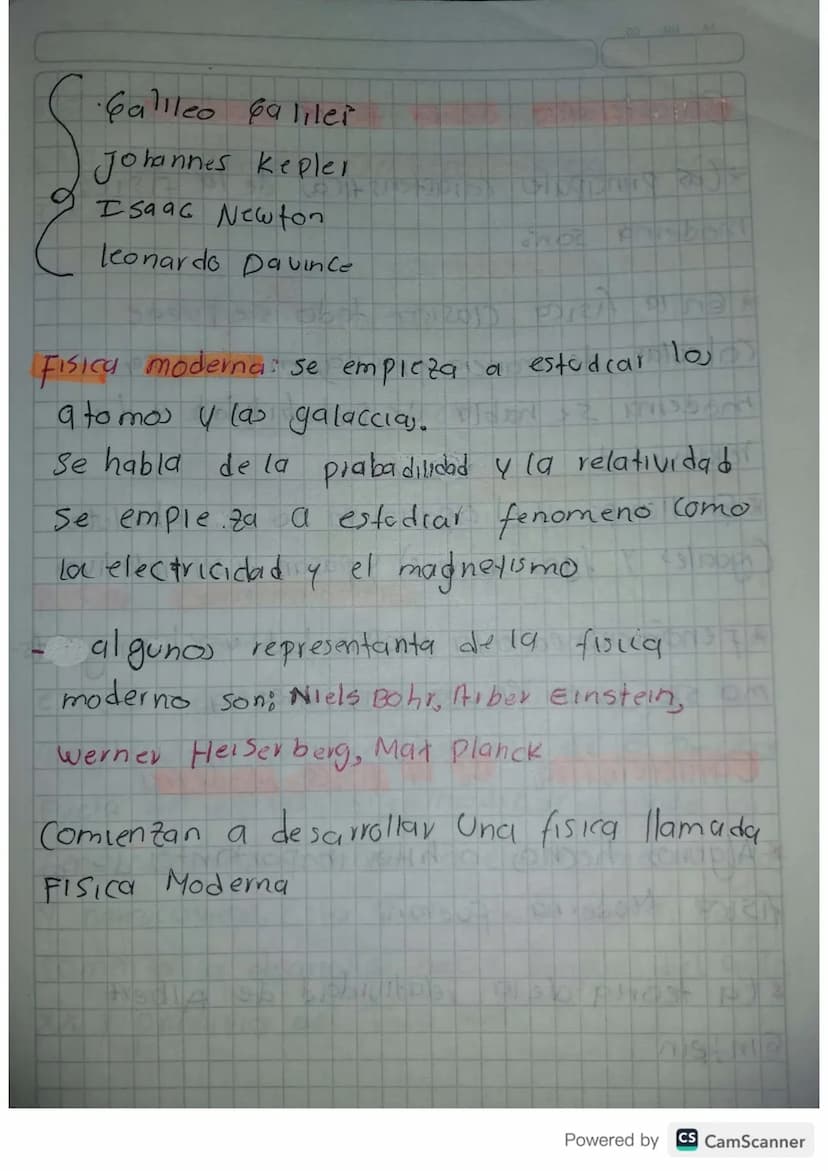 .Galileo Galilei
Johannes Kepler
Isaac Newton
leonardo Davince
Fisica moderna: se empieza a estudiar los
atomos y las galaccias.
se habla de la prabadilidad y la relatividad
se empieza a estudiar fenomeno como
la electricidad y el magnetismo
- algunos representanta de la fisica
moderno son: Niels Bohr, Arber Einstein,
Werner Heiserberg, Max Planck
Comienzan a desarrollar Una fisica llamada
FISICA Moderna
Powered by CS CamScanner